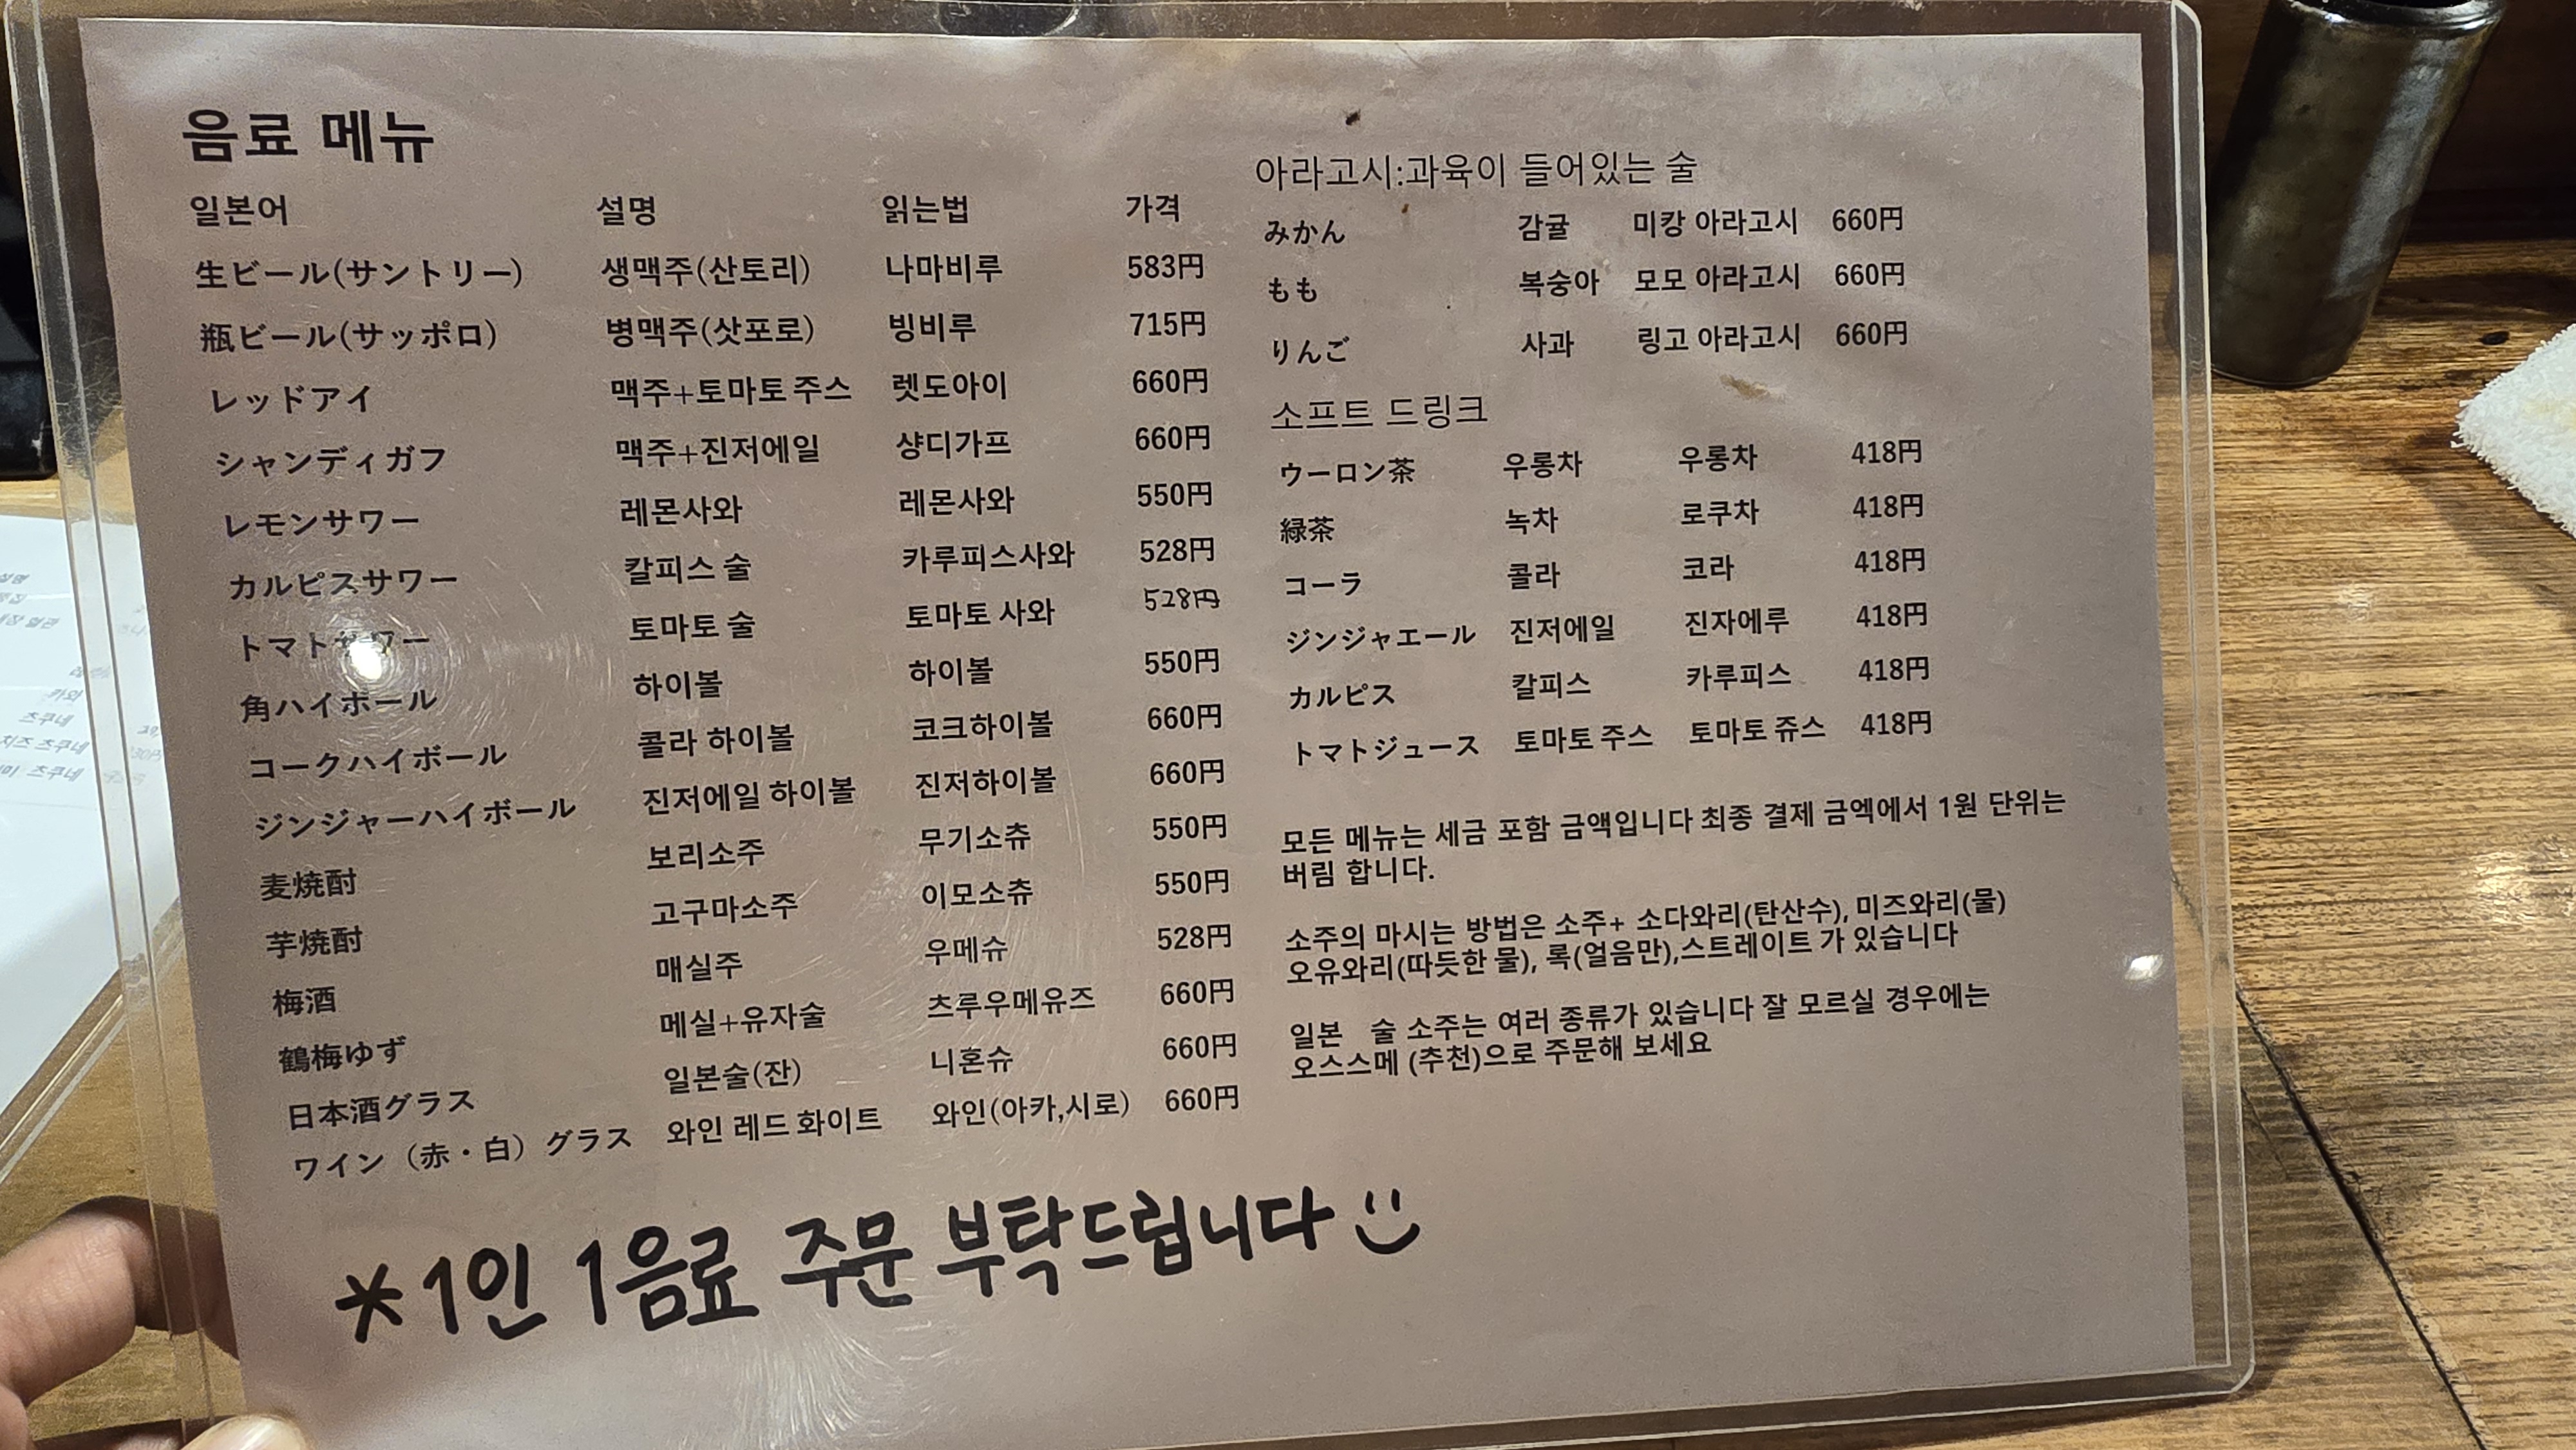 음료 메뉴
일본어 설명 읽는법 가격
生ビール(サントリー) 생맥주(산토리) 나마비루 583円
瓶ビール(サッポロ) 병맥주(삿포로) 빙비루 715円
レッドアイ 맥주+토마토 주스 렛도아이 660円
シャンディガフ 맥주+진저에일 샹디가프 660円
レモンサワー 레몬사와 레몬사와 550円
カルピスサワー 칼피스 술 카루피스사와 528円
トマトサワー 토마토 술 토마토 사와 528円
角ハイボール 하이볼 하이볼 550円
コークハイボール 콜라 하이볼 코크하이볼 660円
ジンジャーハイボール 진저에일 하이볼 진저하이볼 660円
麦焼酎 보리소주 무기소츄 550円
芋焼酎 고구마소주 이모소츄 550円
梅酒 매실주 우메슈 528円
鶴梅ゆず 메실+유자술 츠루우메유즈 660円
日本酒グラス 일본술(잔) 니혼슈 660円
ワイン（赤・白）グラス 와인 레드 화이트 와인(아카,시로) 660円
아라고시:과육이 들어있는 술
みかん 감귤 미캉 아라고시 660円
もも 복숭아 모모 아라고시 660円
りんご 사과 링고 아라고시 660円
소프트 드링크
ウーロン茶 우롱차 우롱차 418円
緑茶 녹차 로쿠차 418円
コーラ 콜라 코라 418円
ジンジャエール 진저에일 진자에루 418円
カルピス 칼피스 카루피스 418円
トマトジュース 토마토 주스 토마토 쥬스 418円
모든 메뉴는 세금 포함 금액입니다 최종 결제 금엑에서 1원 단위는
버림 합니다.
소주의 마시는 방법은 소주+ 소다와리(탄산수), 미즈와리(물)
오유와리(따듯한 물), 록(얼음만),스트레이트 가 있습니다
일본 술 소주는 여러 종류가 있습니다 잘 모르실 경우에는
오스스메 (추천)으로 주문해 보세요
*1인 1음료 주문 부탁드립니다
설명
카와
츠쿠네
치즈 츠쿠네
츠쿠네